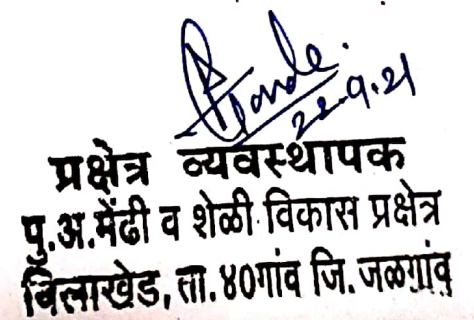 22.9.21
प्रक्षेत्र व्यवस्थापक
पु.अ.मेंढी व शेळी विकास प्रक्षेत्र
बिलाखेड, ता.४०गांव जि.जळगांव